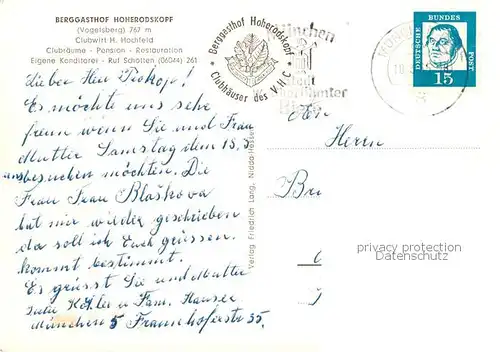 BERGGASTHOF HOHERODSKOPF
(Vogelsberg) 767 m
Clubwirt H. Hochfeld
Clubräume - Pension - Restauration
Eigene Konditorei - Ruf Schotten (06044) 261
Berggasthof Hoherodskopf
Clubhäuser des V.H.C.
München
Stadt
DEUTSCHE BUNDESPOST
15
Lieber Herr Prokop!
Es möchte uns sehr
freuen wenn Sie und Frau
Mutter Samstag dem 15.5
uns besuchen möchten. Die
Frau Blaškova
hat mir wieder geschrieben
da soll ich Euch grüssen.
kommt bestimmt.
Es grüsst Sie und Mutter
Köhler u Fam. Hauser
München 5 Fraunhoferstr 35.
Verlag Friedrich Lang, Nidda-Hessen
Herrn
Br
privacy protection
DELCAMPE